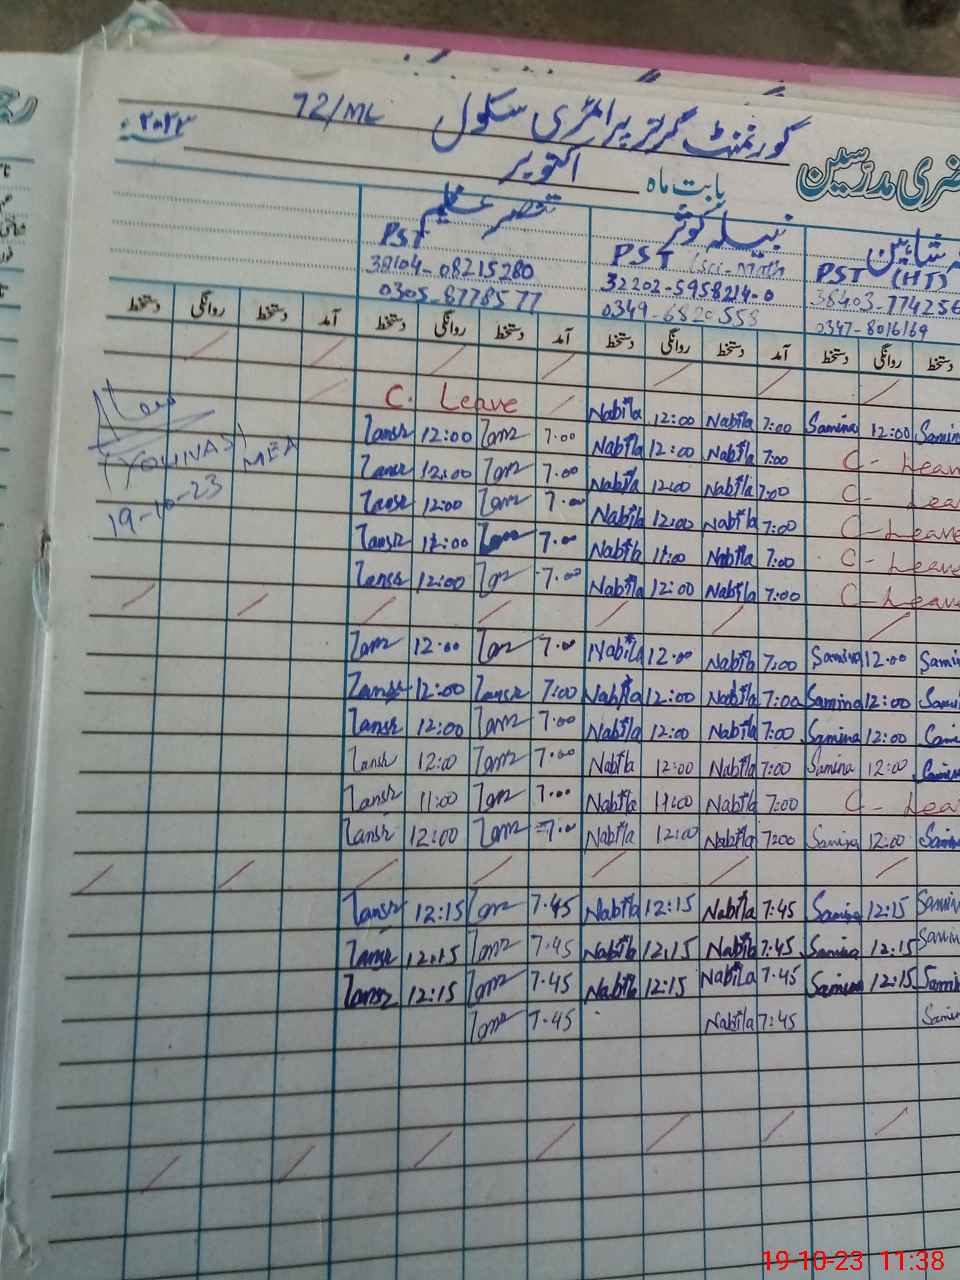 گورنمنٹ گرلز پرائمری سکول 72/ML
حاضری مدرسین
بابت ماہ اکتوبر ۲۰۲۳ء
نبیلہ کوثر
شاہین
PST
PST (Sci-Math
PST (HT)
38104-08215280
32202-5958214-0
38403-774256
0305-8778577
0349-6820558
0347-8016169
دستخط روانگی دستخط آمد دستخط روانگی دستخط آمد دستخط روانگی دستخط آمد دستخط روانگی دستخط
C. Leave Nabila 12:00 Nabila 7:00 Samina 12:00 Samin
12:00 7.00 Nabila 12:00 Nabila 7:00 C - Leav
12:00 7.00 Nabila 12:00 Nabila 7:00 C - Lea
12:00 7.00 Nabila 12:00 Nabila 7:00 C - Leave
12:00 7.00 Nabila 11:00 Nabila 7:00 C - Leave
12:00 7.00 Nabila 12:00 Nabila 7:00 C - Leave
12.00 7.00 Nabila 12.00 Nabila 7:00 Samina 12.00 Sami
12:00 7:00 Nabila 12:00 Nabila 7:00 Samina 12:00 Sami
12:00 7.00 Nabila 12:00 Nabila 7:00 Samina 12:00 Sami
12:00 7.00 Nabila 12:00 Nabila 7:00 Samina 12:00 Samin
11:00 7.00 Nabila 11:00 Nabila 7:00 C - Lea
12:00 7.00 Nabila 12:00 Nabila 7:00 Samina 12:00 Samin
12:15 7.45 Nabila 12:15 Nabila 7:45 Samina 12:15 Samin
12:15 7.45 Nabila 12:15 Nabila 7:45 Samina 12:15 Samin
12:15 7.45 Nabila 12:15 Nabila 7.45 Samina 12:15 Samin
7.45 Nabila 7:45 Samin
(YOUNAS) MEA
19-10-23
19-10-23 11:38